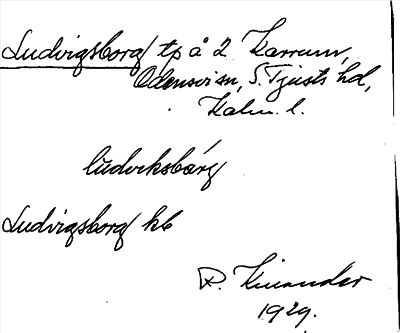 Ludvigsborg tp å 2 Karrum,
Odensvi sn, S. Tjusts hd,
Kalm. l.
lùdviksbárg
Ludvigsborg kb
R. Kinander
1929.